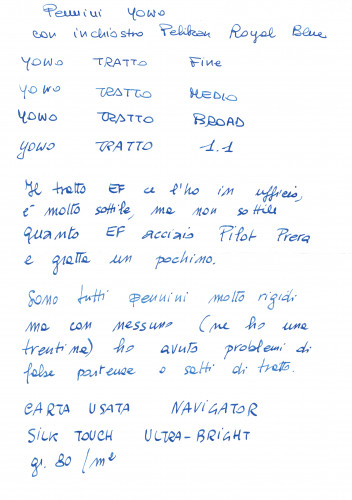 Pennini YOWO
con inchiostro Pelikan Royal Blue
YOWO TRATTO FINE
YOWO TRATTO MEDIO
YOWO TRATTO BROAD
YOWO TRATTO 1.1
Il tratto EF ce l'ho in ufficio,
è molto sottile, ma non sottile
quanto EF acciaio Pilot Prera
e gratta un pochino.
Sono tutti pennini molto rigidi
ma con nessuno (ne ho una
trentina) ho avuto problemi di
false partenze o salti di tratto.
CARTA USATA NAVIGATOR
SILK TOUCH ULTRA-BRIGHT
gr. 80 / m²